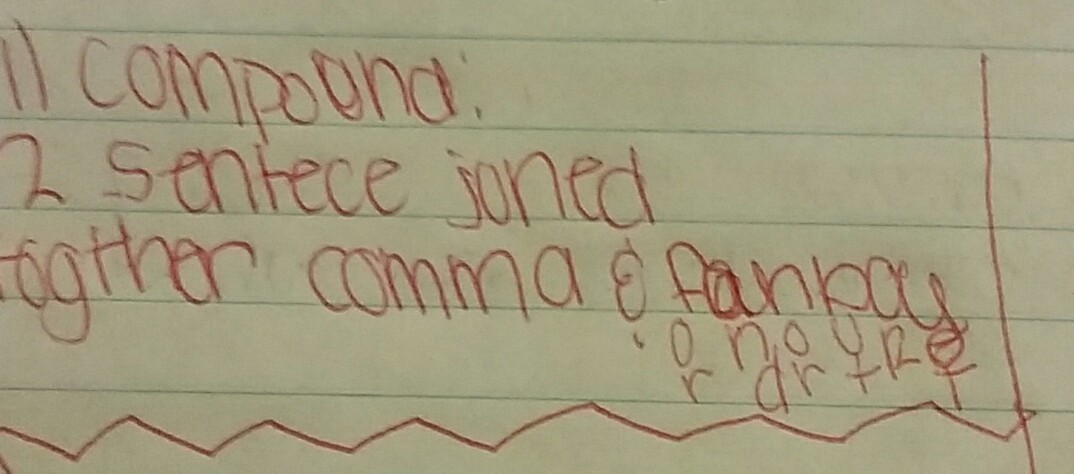 11 compound:
2 Sentece joned
togther comma & fanboy
o n o u R e
r d r t t